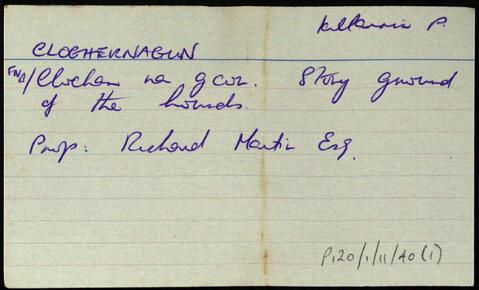 Killannin P.
CLOGHERNAGUN
FNA/Clochar na gcon. Stony ground
of the hounds.
Prop: Richard Martin Esq.
P120/1/11/40(1)